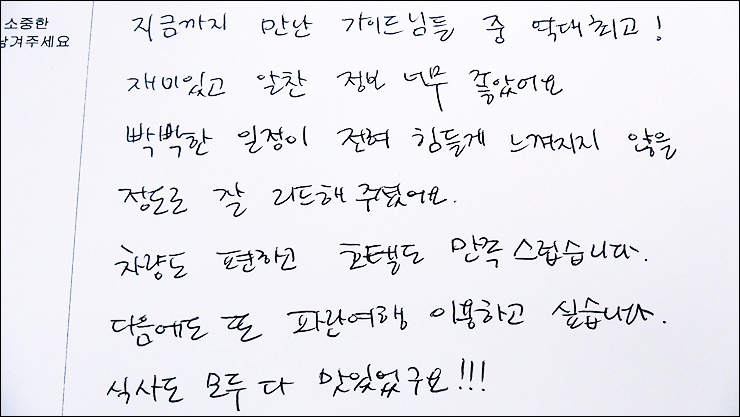 소중한
남겨주세요
지금까지 만난 가이드님들 중 역대최고!
재미있고 알찬 정보 너무 좋았어요
빡빡한 일정이 전혀 힘들게 느껴지지 않을
정도로 잘 리드해주셨어요.
차량도 편하고 호텔도 만족스럽습니다.
다음에도 또 파란여행 이용하고 싶습니다.
식사도 모두 다 맛있었구요!!!